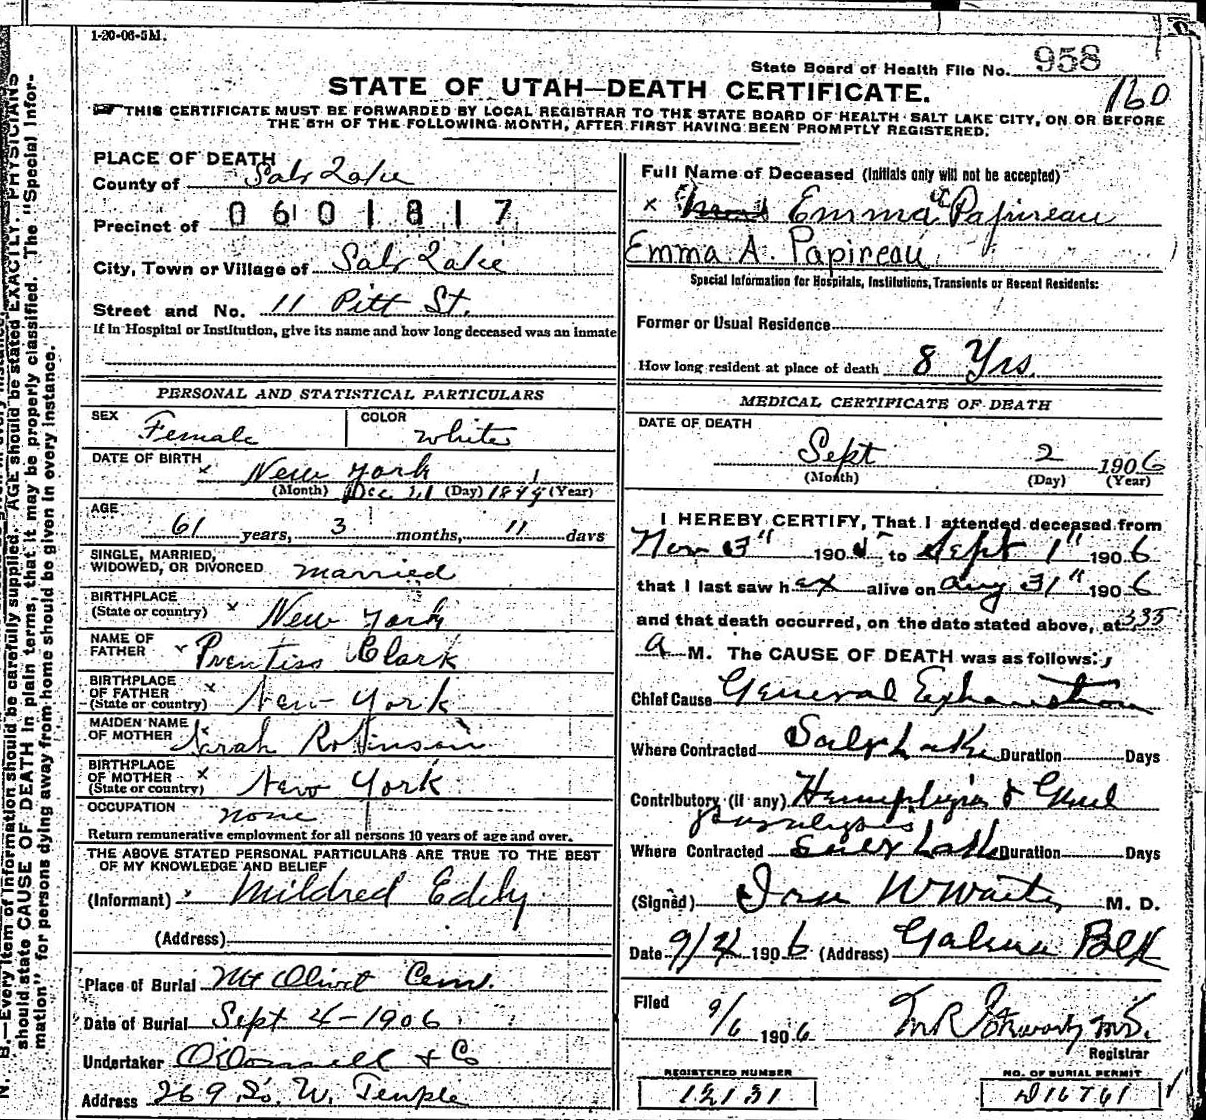 1-20-06-5M.
State Board of Health File No. 958
160
STATE OF UTAH—DEATH CERTIFICATE.
THIS CERTIFICATE MUST BE FORWARDED BY LOCAL REGISTRAR TO THE STATE BOARD OF HEALTH SALT LAKE CITY, ON OR BEFORE
THE 5TH OF THE FOLLOWING MONTH, AFTER FIRST HAVING BEEN PROMPTLY REGISTERED.
PLACE OF DEATH
County of Salt Lake
Precinct of 0601817
City, Town or Village of Salt Lake
Street and No. 11 Pitt St.
If in Hospital or Institution, give its name and how long deceased was an inmate
PERSONAL AND STATISTICAL PARTICULARS
SEX Female COLOR White
DATE OF BIRTH x New York
(Month) Dec (Day) (Year)
AGE 61 years, 3 months, 11 days
SINGLE, MARRIED,
WIDOWED, OR DIVORCED Married
BIRTHPLACE
(State or country) x New York
NAME OF
FATHER x Prentiss Clark
BIRTHPLACE
OF FATHER x
(State or country) New York
MAIDEN NAME
OF MOTHER Sarah Robinson
BIRTHPLACE
OF MOTHER x
(State or country) New York
OCCUPATION none
Return remunerative employment for all persons 10 years of age and over.
THE ABOVE STATED PERSONAL PARTICULARS ARE TRUE TO THE BEST
OF MY KNOWLEDGE AND BELIEF
(Informant) x Mildred Eddy
(Address)
Place of Burial Mt Olivet Cem.
Date of Burial Sept 4-1906
Undertaker O'Donnell & Co
Address 269 So. W. Temple
Full Name of Deceased (Initials only will not be accepted)
x Emma Papineau
Emma A. Papineau
Special Information for Hospitals, Institutions, Transients or Recent Residents:
Former or Usual Residence
How long resident at place of death 8 Yrs.
MEDICAL CERTIFICATE OF DEATH
DATE OF DEATH
Sept 2 1906
(Month) (Day) (Year)
I HEREBY CERTIFY, That I attended deceased from
Nov 3" 1905 to Sept 1" 1906
that I last saw her alive on Aug 31" 1906
and that death occurred, on the date stated above, at 3.35
a M. The CAUSE OF DEATH was as follows:
Chief Cause General Exhaustion
Where Contracted Salt Lake Duration Days
Contributory (if any) Hemiplegia &
paralysis
Where Contracted Salt Lake Duration Days
(Signed) W Waite M. D.
Date 9/4 1906 (Address) Galena Blk
Filed 9/6 1906 M.D.
Registrar
REGISTERED NUMBER
NO. OF BURIAL PERMIT
12131
D16761
N. B.—Every item of information should be carefully supplied. AGE should be stated EXACTLY. PHYSICIANS
should state CAUSE OF DEATH in plain terms, that it may be properly classified. The "Special Infor-
mation" for persons dying away from home should be given in every instance.